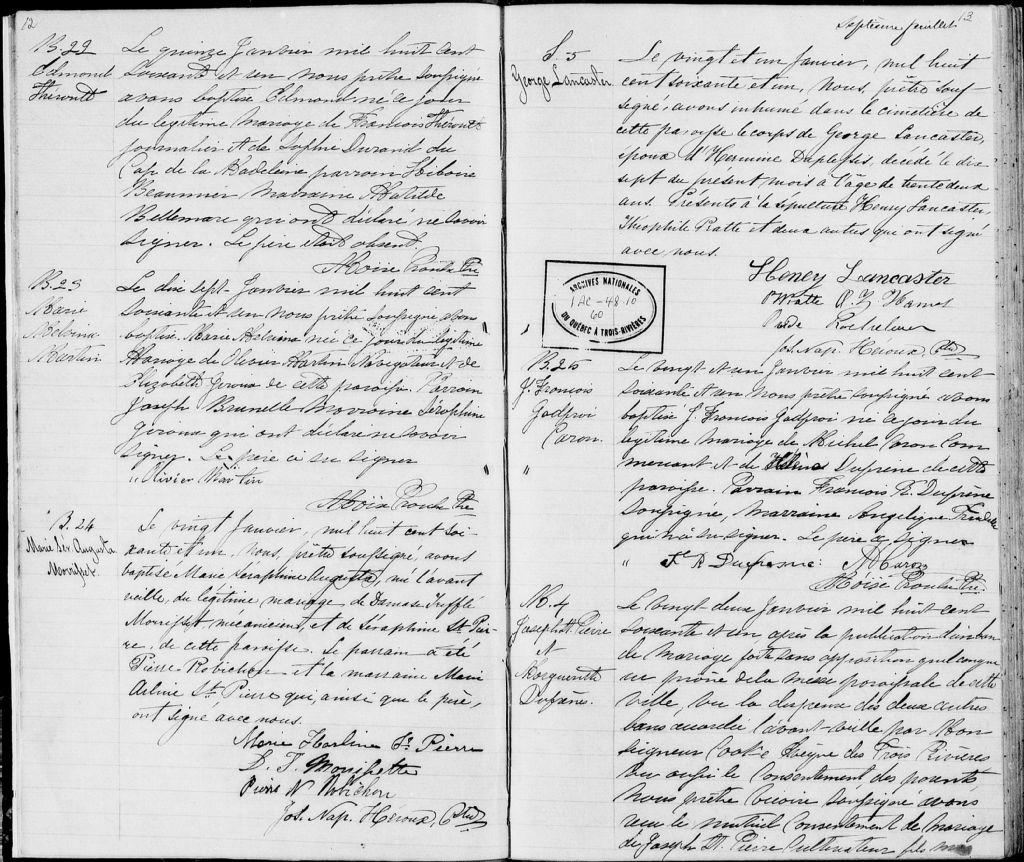 12
B. 22
Edmond
Théroult
Le quinze Janvier mil huit cent
soixante et un nous prêtre soussigné
avons baptisé Edmond né ce jour
du légitime mariage de François Théroult
journalier et de Sophie Durand du
Cap de la Madeleine parrain Liboire
Beaumier marraine Mathilde
Bellemare qui ont déclaré ne savoir
signer. Le père etait absent.
Moïse Proulx Ptr
B. 23
Marie
Melvina
Martin
Le dix sept Janvier mil huit cent
soixante et un nous prêtre soussigné avons
baptisé Marie Melvina née ce jour du légitime
Mariage de Olivier Martin Navigateur et de
Elizabeth Giroux de cette paroisse. Parrain
Joseph Brunelle marraine Séraphine
Giroux qui ont déclaré ne savoir
signer. Le père a su signer
Olivier Martin
Moïse Proulx Ptr
B. 24
Marie Sér. Augusta
Morisset.
Le vingt Janvier, mil huit cent soi-
xante et un, Nous, prêtre soussigné, avons
baptisé Marie Séraphine Augusta, née l'avant
veille, du légitime mariage de Damase Truffle
Morisset, mécanicien, et de Séraphine St. Pier-
re, de cette paroisse. Le parrain a été
Pierre Robichon et la marraine Marie
Arline St. Pierre qui, ainsi que le père,
ont signé avec nous.
Marie Harline St Pierre
D. T. Morissette
Pierre N Robichon
Jos. Nap. Héroux, Ptre
13
Septième feuillet
S. 5
George Lancaster
Le vingt et un Janvier, mil huit
cent soixante et un, Nous, prêtre sous-
signé, avons inhumé dans le cimetière de
cette paroisse le corps de George Lancaster,
époux d'Hermine Duplessis, décédé le dix
sept du présent mois à l'âge de trente deux
ans. Présents à la sépulture Henry Lancaster,
Théophile Ratte et deux autres qui ont signé
avec nous.
Henry Lancaster
Jos. Nap. Héroux, Ptre
ARCHIVES NATIONALES
1AC-48-10
60
DU QUÉBEC À TROIS-RIVIÈRES
B. 25
F. François
Godfroi
Caron.
Le vingt et un Janvier mil huit cent
soixante et un nous prêtre soussigné avons
baptisé F. François Godfroi né ce jour du
légitime mariage de Michel Caron Com-
mercant et de Héléna Dufresne de cette
paroisse. Parrain François R. Dufrèsne
soussigné, marraine Angelique Trudelle
qui n'a su signer. Le père a signer
F R Dufresne M Caron
Moïse Proulx Ptr.
M. 4
Joseph St. Pierre
et
Marguerite
Dufrèsne.
Le vingt deux Janvier mil huit cent
soixante et un après la publication d'un ban
de mariage faite sans opposition quelconque
au prône de la messe paroissiale de cette
ville, vu la dispense des deux autres
bans accordée l'avant-veille par Mon
seigneur Cooke Evêque des Trois Rivières
vu aussi le consentement des parents,
Nous prêtre vicaire soussigné avons
recu le mutuel consentement de mariage
de Joseph St. Pierre Cultivateur fils